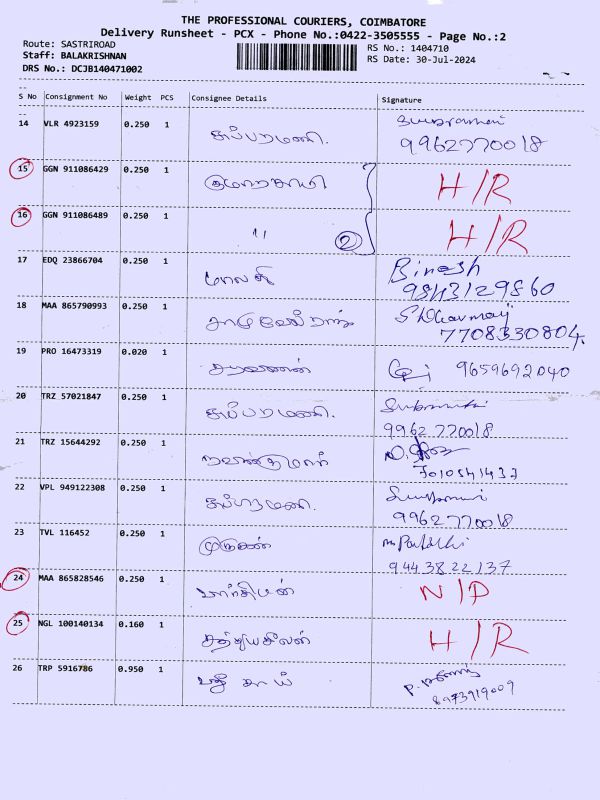 THE PROFESSIONAL COURIERS, COIMBATORE
Delivery Runsheet - PCX - Phone No.:0422-3505555 - Page No.:2
Route: SASTRIROAD
RS No.: 1404710
Staff: BALAKRISHNAN
RS Date: 30-Jul-2024
DRS No.: DCJB140471002
S No Consignment No Weight PCS Consignee Details Signature
14 VLR 4923159 0.250 1 சுப்பரமணி.
9962770018
15 GGN 911086429 0.250 1 குமாரசாமி H/R
16 GGN 911086489 0.250 1 " 2 H/R
17 EDQ 23866704 0.250 1 மாலதி Binesh
9843129860
18 MAA 865790993 0.250 1
7708330804.
19 PRO 16473319 0.020 1 சரவணன் 9659692040
20 TRZ 57021847 0.250 1 சுப்பரமணி.
9962770018
21 TRZ 15644292 0.250 1
7010541437
22 VPL 949122308 0.250 1 சுப்பரமணி.
9962770018
23 TVL 116452 0.250 1 முருகன்
9443822137
24 MAA 865828546 0.250 1 N/D
25 NGL 100140134 0.160 1 H/R
26 TRP 5916786 0.950 1
8973919009